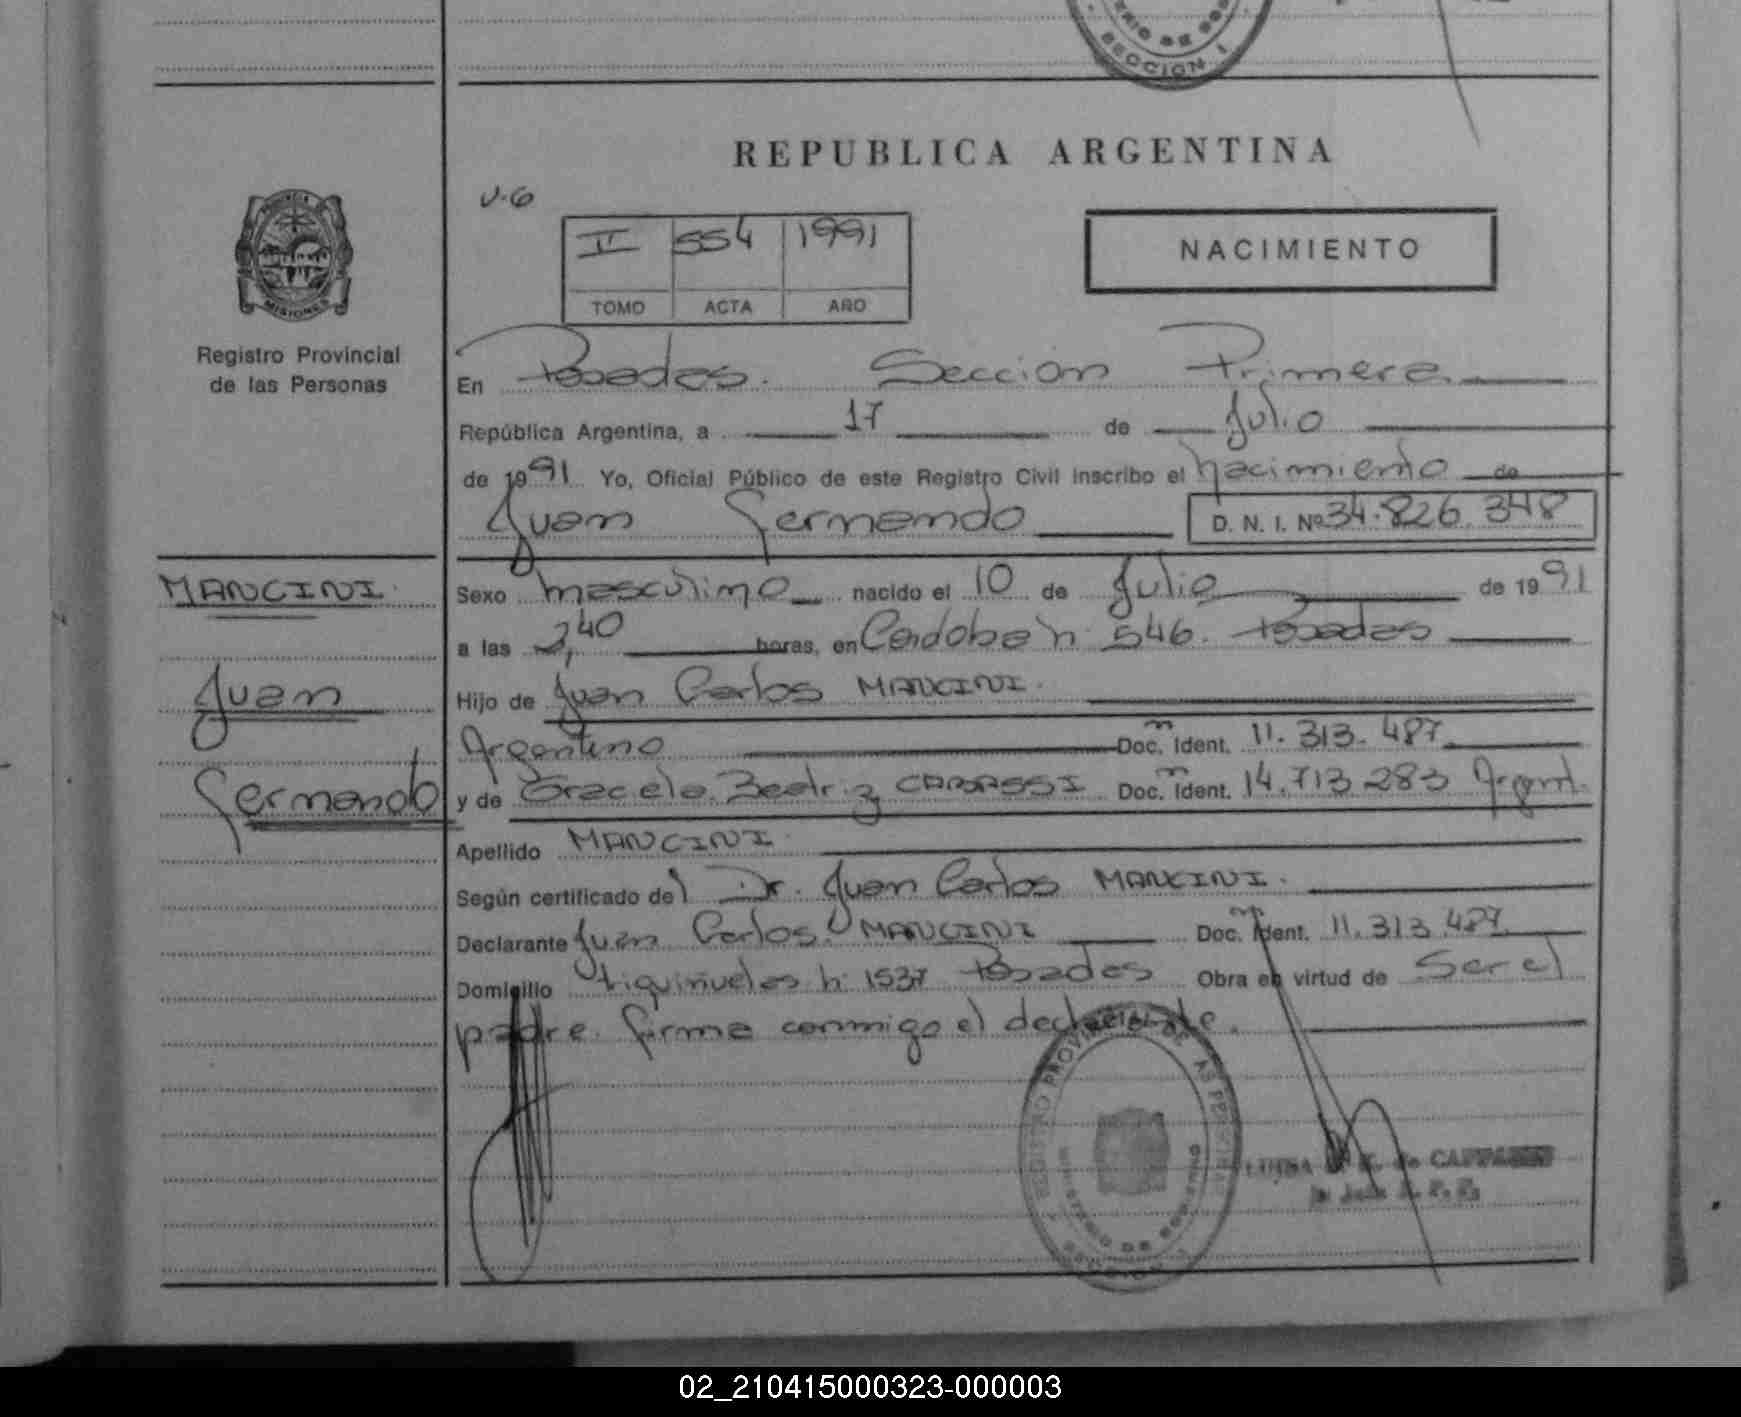 SECCION 1
REPUBLICA ARGENTINA
V-6
II 554 1991
TOMO ACTA AÑO
NACIMIENTO
PROVINCIA
MISIONES
Registro Provincial
de las Personas
En Posadas. Sección Primera
República Argentina, a 17 de Julio
de 1991 Yo, Oficial Público de este Registro Civil inscribo el nacimiento de
Juan Fernando D. N. I. Nº 34.826.348
MANCINI.
Juan
Fernando
Sexo masculino nacido el 10 de Julio de 1991
a las 2,40 horas, en Cordoba n: 546. Posadas
Hijo de Juan Carlos MANCINI.
Argentino Doc. Ident. 11.313.487
y de Graciela Beatriz Doc. Ident. 14.713.283 Argent.
Apellido MANCINI
Según certificado del Dr. Juan Carlos MANCINI.
Declarante Juan Carlos MANCINI Doc. Ident. 11.313.487
Domicilio n: 1537 Posadas Obra en virtud de Ser el
padre. firma conmigo el declarante.
REGISTRO PROVINCIAL DE LAS PERSONAS
MINISTERIO DE GOBIERNO
02_210415000323-000003